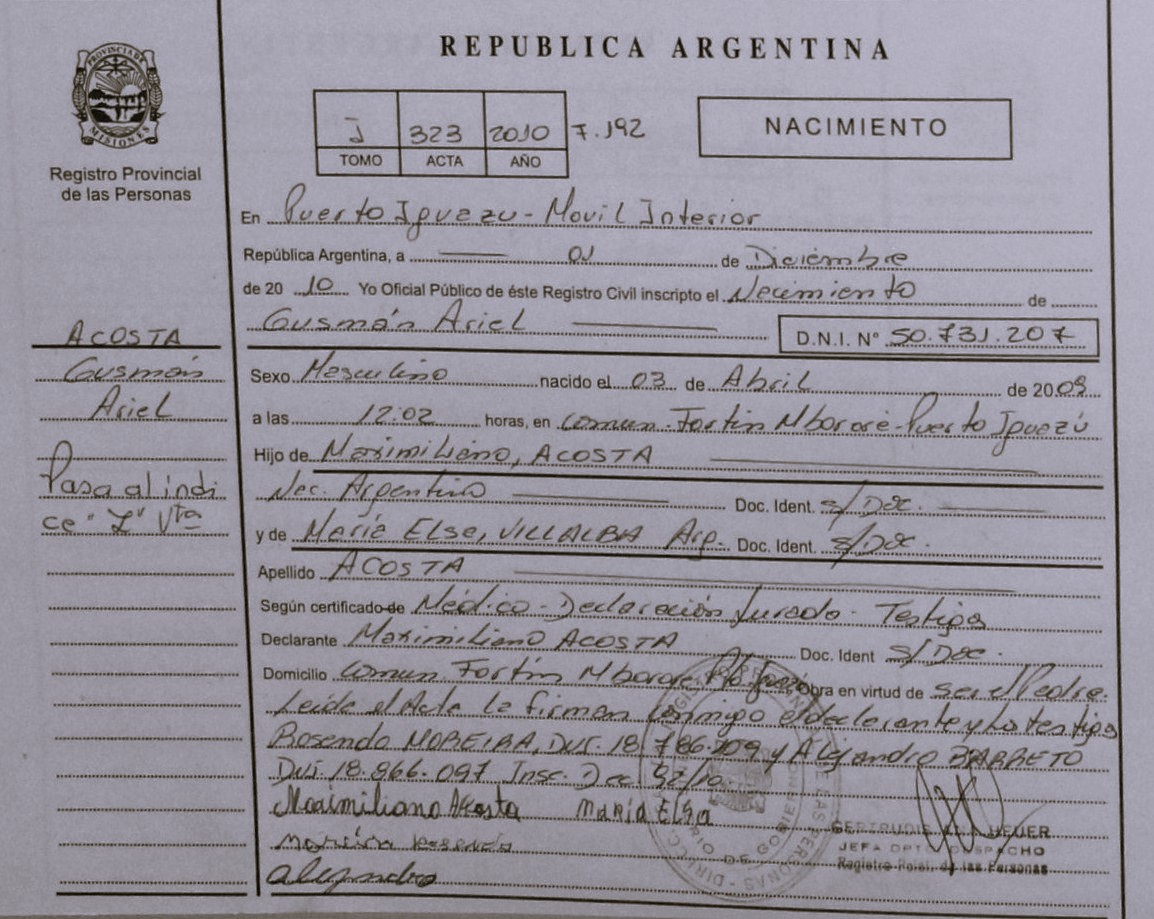 REPUBLICA ARGENTINA
PROVINCIA DE MISIONES
Registro Provincial
de las Personas
J 323 2010 7.192
TOMO ACTA AÑO
NACIMIENTO
En Puerto Iguazu - Movil Interior
República Argentina, a 01 de Diciembre
de 20 10 Yo Oficial Público de éste Registro Civil inscripto el Nacimiento de
Gusmán Ariel D.N.I. N° 50.731.207
ACOSTA
Gusmán
Ariel
Pasa al indi
ce "Z" Vta
Sexo Masculino nacido el 03 de Abril de 2009
a las 12:02 horas, en Comun. Fortin Mbororé - Puerto Iguazú
Hijo de Maximiliano, ACOSTA
Nac. Argentina Doc. Ident. S/Doc.
y de María Elsa, VILLALBA Arg. Doc. Ident. S/Doc.
Apellido ACOSTA
Según certificado de Médico - Declaración Jurada - Testigos
Declarante Maximiliano ACOSTA Doc. Ident S/Doc.
Domicilio Comun. Fortín Mbororé Pto Iguazú Obra en virtud de ser el Padre.
Leída el Acta la firman conmigo el declarante y los testigos
Rosendo MOREIRA, DNI. 18.786.209 y Alejandro BARRETO
DNI. 18.866.097 Insc. Dec. 92/10
Maximiliano Acosta MARIA ELSA
Moreira Rosendo
alejandro
GERTRUDIS
JEFA DPTO DESPACHO
Registro Pcial. de las Personas